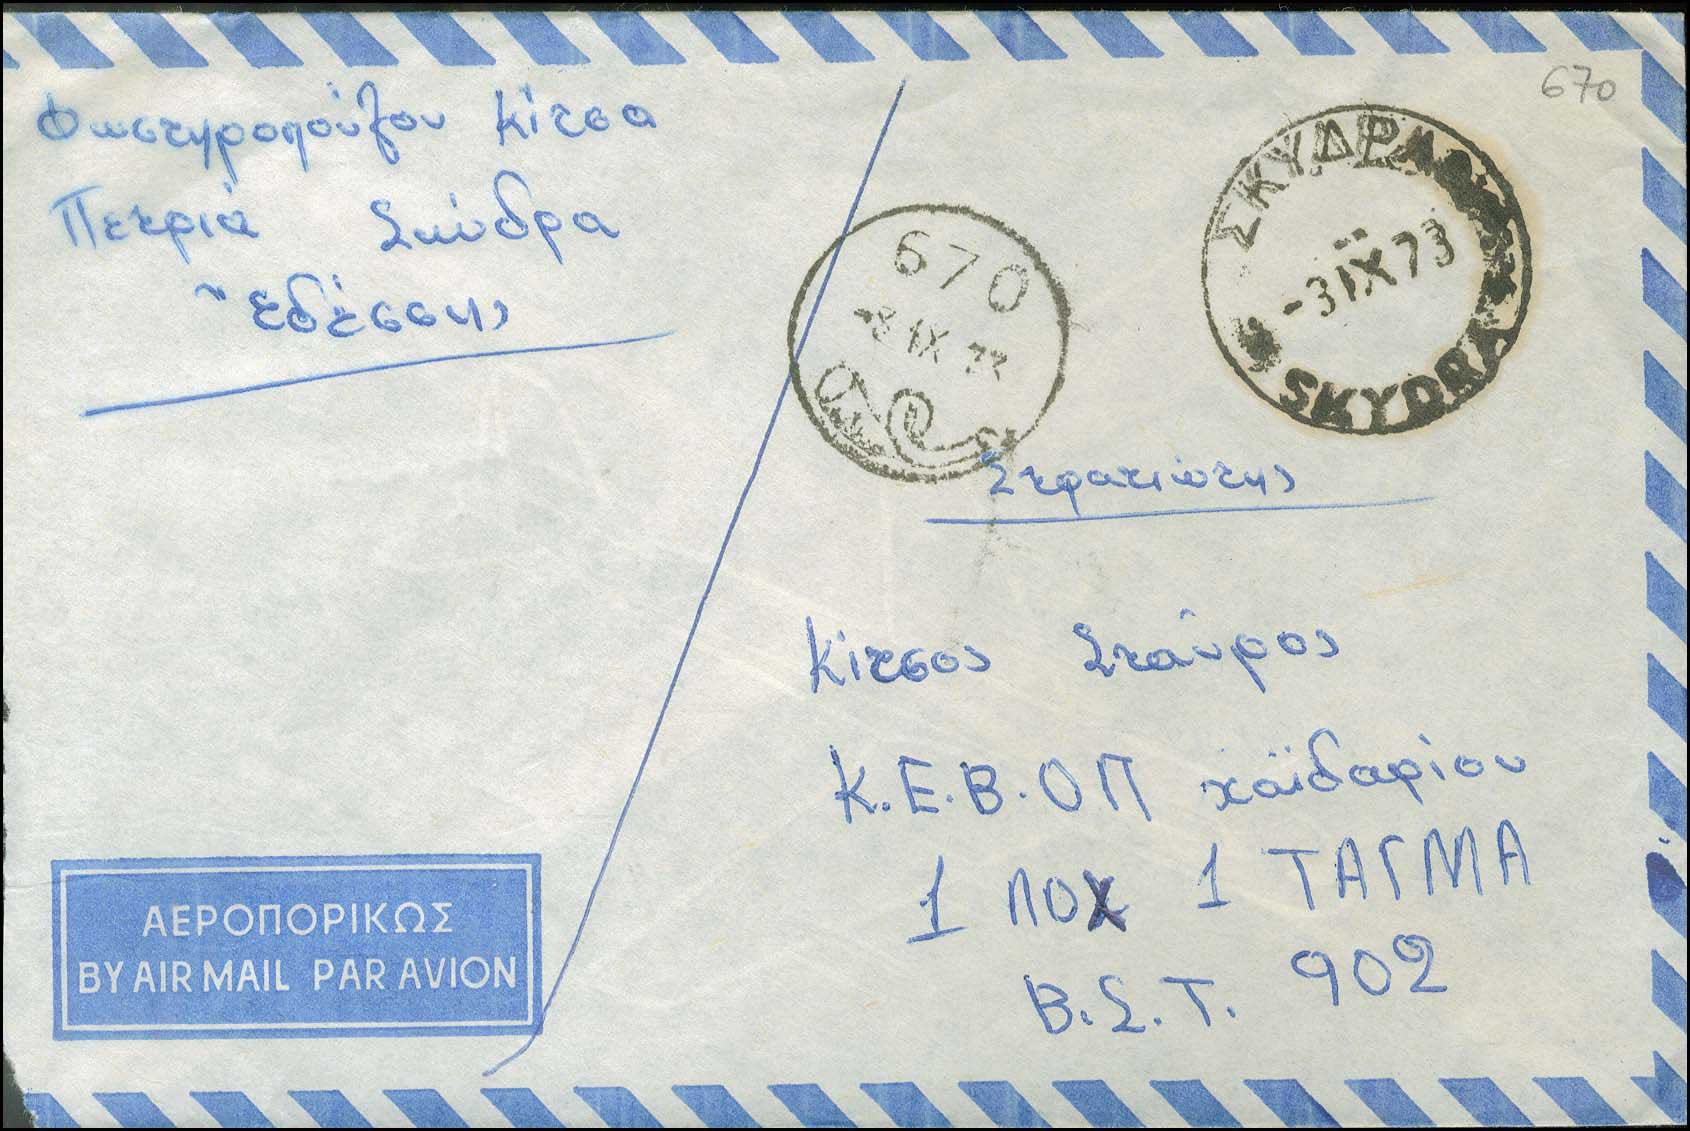 670
Φωστηροπούλου Κίτσα
Πετριά Σκύδρα
Ἐδέσσης
ΣΚΥΔΡΑ
-3 IX 73
SKYDRA
670
-3 IX 73
Στρατιώτης
Κίτσος Σταῦρος
Κ.Ε.Β.ΟΠ χαϊδαρίου
1 ΛΟΧ 1 ΤΑΓΜΑ
Β.Σ.Τ. 902
ΑΕΡΟΠΟΡΙΚΩΣ
BY AIR MAIL PAR AVION